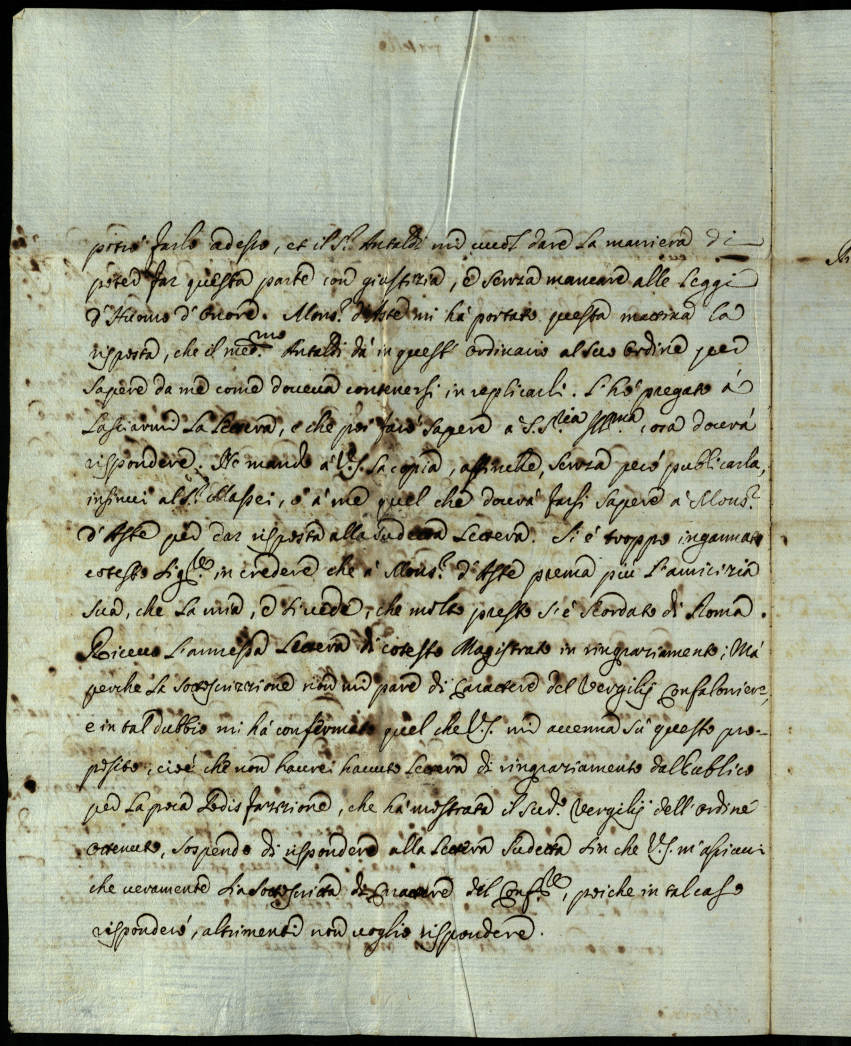 potrò farlo adesso, et il S.r Antaldi mi vuol dare la maniera di
poter far questa parte con giustizia, e senza mancare alle leggi
d'Huomo d'Onore. Mons.r d'Aste mi hà portato questa mattina la
risposta, che il med.mo Antaldi dà in quest'ordinario al suo ordine per
sapere da me come doveva contenersi in replicarli. L'hò pregato à
lasciarmi la lettera, e che poi farò sapere à S.S.ria Ill.ma cosa dovrà
rispondere. Ne mando à V.S. la copia, affinche, senza però publicarla,
insinui al S.r Massei, e à me quel che dovrà farsi sapere à Mons.r
d'Aste per dar risposta alla sudetta lettera. Si è troppo ingannato
cotesto Sig.re in credere che à Mons.r d'Aste prema più l'amicizia
sua, che la mia, e si vede, che molto presto si è scordato di Roma.
Ricevo l'annessa lettera di cotesto Magistrato in ringraziamento; Mà
perche la sottoscrizzione non mi pare di Carattere del Vergilij Confaloniere,
e in tal dubbio mi hà confermato quel che V.S. mi accenna sù questo pro-
posito, cioè che non haurei hauuto lettera di ringraziamento dal Publico
per la poca sodisfazzione, che hà mostrata il sud.o Vergilij dell'ordine
ottenuto, sospendo di rispondere alla lettera sudetta sin che V.S. m'assicuri
che veramente sia sottoscritta di Carattere del Conf.re, poiche in tal caso
risponderò, altrimenti non voglio rispondere.